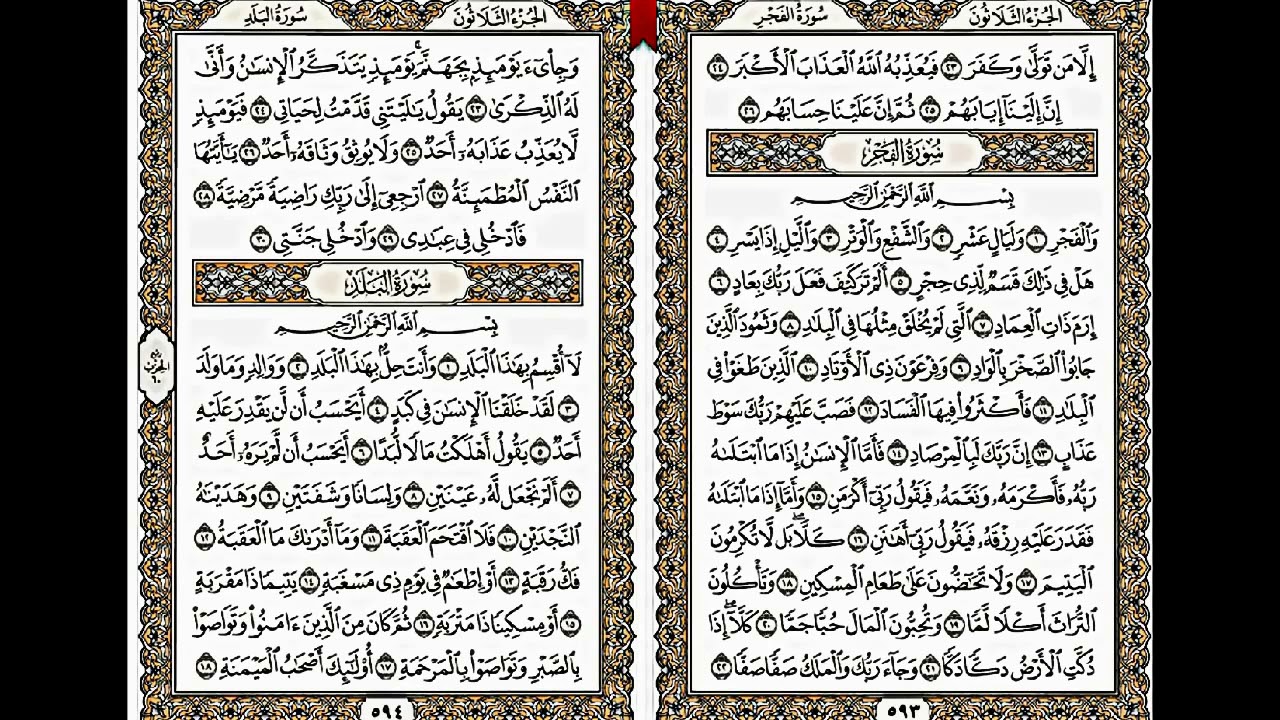 سُورَةُ الفَجْرِ
الجُزْءُ الثَّلَاثُونَ
إِلَّا مَن تَوَلَّىٰ وَكَفَرَ ٢٣ فَيُعَذِّبُهُ ٱللَّهُ ٱلْعَذَابَ ٱلْأَكْبَرَ ٢٤
إِنَّ إِلَيْنَآ إِيَابَهُمْ ٢٥ ثُمَّ إِنَّ عَلَيْنَا حِسَابَهُم ٢٦
سُورَةُ الفَجْرِ
بِسْمِ ٱللَّهِ ٱلرَّحْمَٰنِ ٱلرَّحِيمِ
وَٱلْفَجْرِ ١ وَلَيَالٍ عَشْرٍ ٢ وَٱلشَّفْعِ وَٱلْوَتْرِ ٣ وَٱلَّيْلِ إِذَا يَسْرِ ٤
هَلْ فِى ذَٰلِكَ قَسَمٌ لِّذِى حِجْرٍ ٥ أَلَمْ تَرَ كَيْفَ فَعَلَ رَبُّكَ بِعَادٍ ٦
إِرَمَ ذَاتِ ٱلْعِمَادِ ٧ ٱلَّتِى لَمْ يُخْلَقْ مِثْلُهَا فِى ٱلْبِلَٰدِ ٨ وَثَمُودَ ٱلَّذِينَ
جَابُوا۟ ٱلصَّخْرَ بِٱلْوَادِ ٩ وَفِرْعَوْنَ ذِى ٱلْأَوْتَادِ ١٠ ٱلَّذِينَ طَغَوْا۟ فِى
ٱلْبِلَٰدِ ١١ فَأَكْثَرُوا۟ فِيهَا ٱلْفَسَادَ ١٢ فَصَبَّ عَلَيْهِمْ رَبُّكَ سَوْطَ
عَذَابٍ ١٣ إِنَّ رَبَّكَ لَبِٱلْمِرْصَادِ ١٤ فَأَمَّا ٱلْإِنسَٰنُ إِذَا مَا ٱبْتَلَىٰهُ
رَبُّهُۥ فَأَكْرَمَهُۥ وَنَعَّمَهُۥ فَيَقُولُ رَبِّىٓ أَكْرَمَنِ ١٥ وَأَمَّآ إِذَا مَا ٱبْتَلَىٰهُ
فَقَدَرَ عَلَيْهِ رِزْقَهُۥ فَيَقُولُ رَبِّىٓ أَهَٰنَنِ ١٦ كَلَّا ۖ بَل لَّا تُكْرِمُونَ
ٱلْيَتِيمَ ١٧ وَلَا تَحَٰٓضُّونَ عَلَىٰ طَعَامِ ٱلْمِسْكِينِ ١٨ وَتَأْكُلُونَ
ٱلتُّرَاثَ أَكْلًا لَّمًّا ١٩ وَتُحِبُّونَ ٱلْمَالَ حُبًّا جَمًّا ٢٠ كَلَّآ ۖ إِذَا
دُكَّتِ ٱلْأَرْضُ دَكًّا دَكًّا ٢١ وَجَآءَ رَبُّكَ وَٱلْمَلَكُ صَفًّا صَفًّا ٢٢
٥٩٣
سُورَةُ البَلَدِ
الجُزْءُ الثَّلَاثُونَ
وَجِا۟ىٓءَ يَوْمَئِذٍۭ بِجَهَنَّمَ ۚ يَوْمَئِذٍ يَتَذَكَّرُ ٱلْإِنسَٰنُ وَأَنَّىٰ
لَهُ ٱلذِّكْرَىٰ ٢٣ يَقُولُ يَٰلَيْتَنِى قَدَّمْتُ لِحَيَاتِى ٢٤ فَيَوْمَئِذٍ
لَّا يُعَذِّبُ عَذَابَهُۥٓ أَحَدٌ ٢٥ وَلَا يُوثِقُ وَثَاقَهُۥٓ أَحَدٌ ٢٦ يَٰٓأَيَّتُهَا
ٱلنَّفْسُ ٱلْمُطْمَئِنَّةُ ٢٧ ٱرْجِعِىٓ إِلَىٰ رَبِّكِ رَاضِيَةً مَّرْضِيَّةً ٢٨
فَٱدْخُلِى فِى عِبَٰدِى ٢٩ وَٱدْخُلِى جَنَّتِى ٣٠
سُورَةُ البَلَدِ
بِسْمِ ٱللَّهِ ٱلرَّحْمَٰنِ ٱلرَّحِيمِ
لَآ أُقْسِمُ بِهَٰذَا ٱلْبَلَدِ ١ وَأَنتَ حِلٌّۢ بِهَٰذَا ٱلْبَلَدِ ٢ وَوَالِدٍ وَمَا وَلَدَ
٣ لَقَدْ خَلَقْنَا ٱلْإِنسَٰنَ فِى كَبَدٍ ٤ أَيَحْسَبُ أَن لَّن يَقْدِرَ عَلَيْهِ
أَحَدٌ ٥ يَقُولُ أَهْلَكْتُ مَالًا لُّبَدًا ٦ أَيَحْسَبُ أَن لَّمْ يَرَهُۥٓ أَحَدٌ
٧ أَلَمْ نَجْعَل لَّهُۥ عَيْنَيْنِ ٨ وَلِسَانًا وَشَفَتَيْنِ ٩ وَهَدَيْنَٰهُ
ٱلنَّجْدَيْنِ ١٠ فَلَا ٱقْتَحَمَ ٱلْعَقَبَةَ ١١ وَمَآ أَدْرَىٰكَ مَا ٱلْعَقَبَةُ ١٢
فَكُّ رَقَبَةٍ ١٣ أَوْ إِطْعَٰمٌ فِى يَوْمٍ ذِى مَسْغَبَةٍ ١٤ يَتِيمًا ذَا مَقْرَبَةٍ
١٥ أَوْ مِسْكِينًا ذَا مَتْرَبَةٍ ١٦ ثُمَّ كَانَ مِنَ ٱلَّذِينَ ءَامَنُوا۟ وَتَوَاصَوْا۟
بِٱلصَّبْرِ وَتَوَاصَوْا۟ بِٱلْمَرْحَمَةِ ١٧ أُو۟لَٰٓئِكَ أَصْحَٰبُ ٱلْمَيْمَنَةِ ١٨
٥٩٤